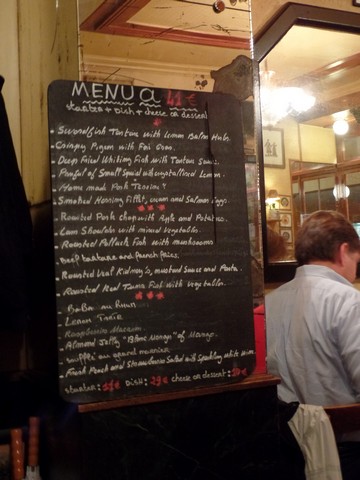 MENU a 41 €
starter + Dish + cheese or dessert
- Swordfish Tartare with Lemon Balm Herbs.
- Crispy Pigeon with Foie Gras.
- Deep Fried Whiting Fish with Tartare Sauce.
- Panful of Small Squid with crystallised Lemon.
- Home made Pork Terrine
- Smoked Herring Fillet, cream and Salmon eggs.
- Roasted Pork chop with Apple and Potatoes.
- Lamb Shoulder with mixed Vegetables.
- Roasted Pollack Fish with mushrooms
- Beef barbara and french fries.
- Roasted Veal Kidney's, mustard sauce and Pasta.
- Roasted Red Tuna Fish with Vegetables.
- BaBa au Rhum
- Lemon Tarte
- Raspberries Macaron.
- Almond Jelly "Blanc Manger" of Mango.
- Fresh Peach and Strawberries Salad with Sparkling White Wine.
starter: Dish: 29€ cheese or dessert: